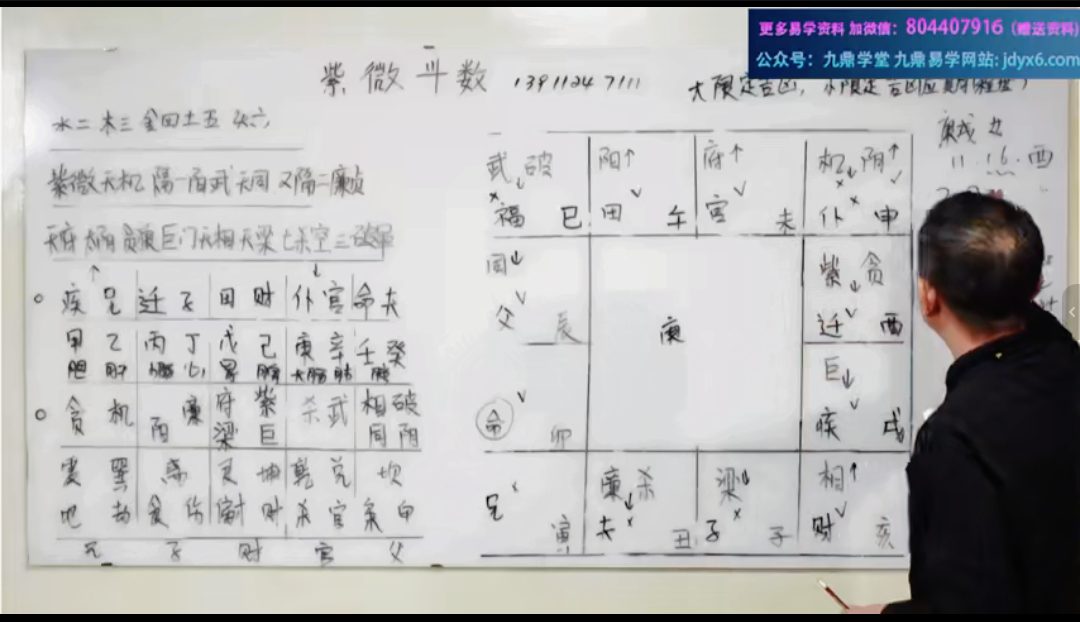 更多易学资料 加微信：804407916（赠送资料）
公众号：九鼎学堂 九鼎易学网站：jdyx6.com
紫微斗数 13911247111
水二 木三 金四 土五 火六
紫微天机 隔一阳武天同 又隔二廉贞
天府太阴贪狼巨门天相天梁七杀空三破军
疾 兄 迁 子 田 财 仆 官 命 夫
甲 乙 丙 丁 戊 己 庚 辛 壬 癸
胆 肝 小肠 心 胃 脾 大肠 肺
贪 机 阳 廉 府 紫 杀 武 相 破
梁 巨 同 阴
震 巽 离 艮 坤 乾 兑 坎
兄 子 财 官 父
庚戌
武 破 阳↑ 府↑ 机 阴↑
福 巳 田 午 官 未 仆 申
同 紫 贪
父 辰 庚 迁 酉
巨
命 卯 疾 戌
廉 杀 梁 相↑
兄 寅 夫 丑 子 子 财 亥